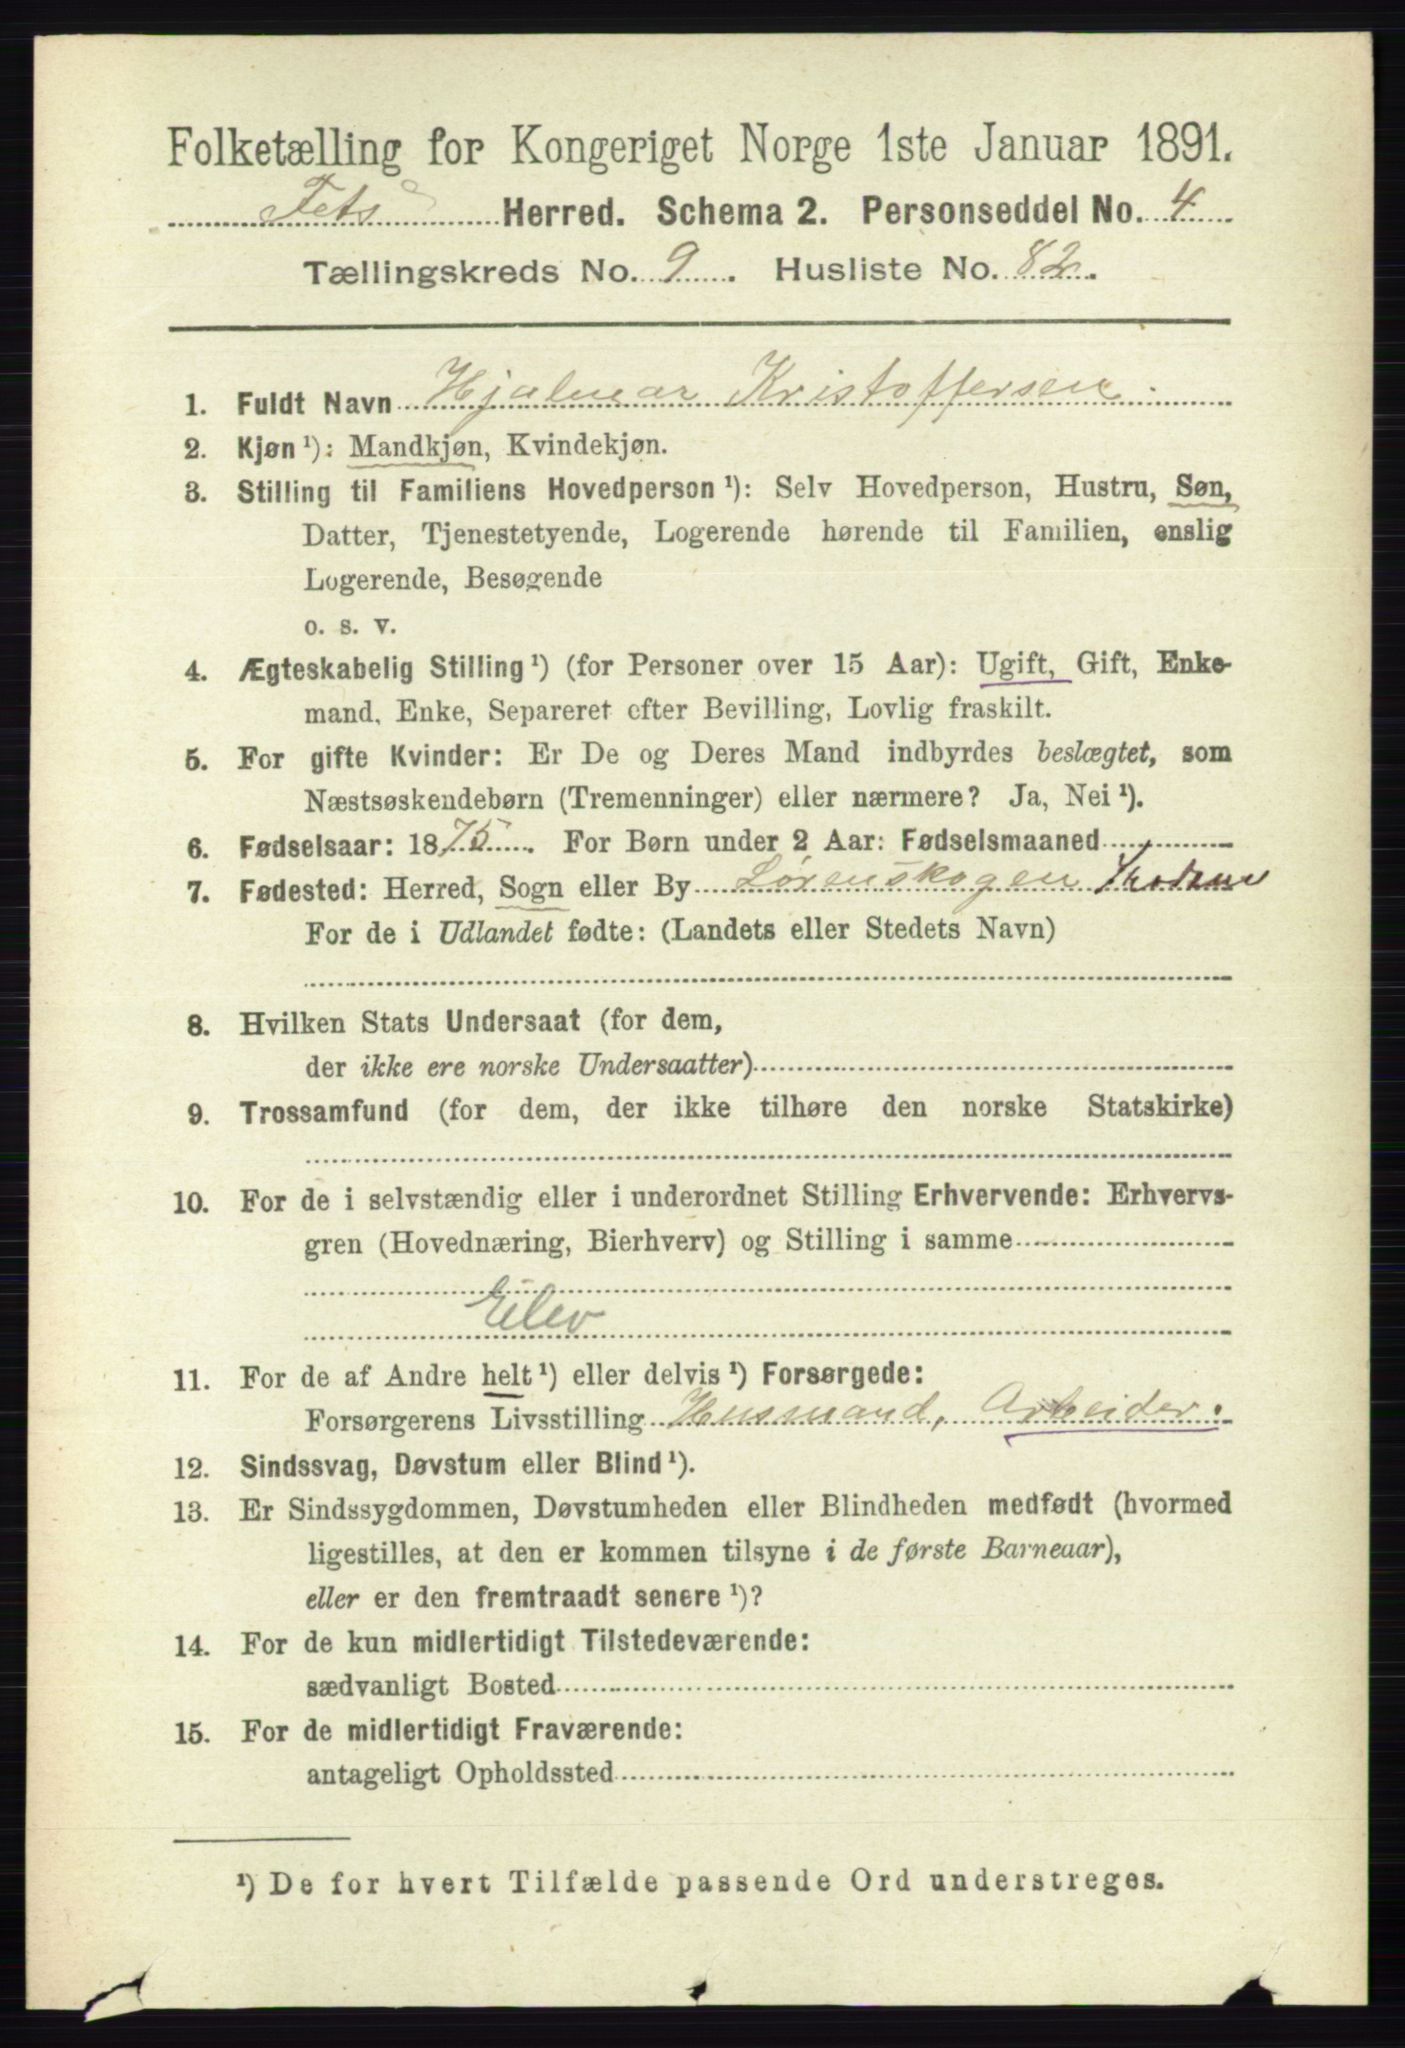 Folketælling for Kongeriget Norge 1ste Januar 1891.
Fets Herred. Schema 2. Personseddel No. 4
Tællingskreds No. 9. Husliste No. 82.
1. Fuldt Navn Hjalmar Kristoffersen.
2. Kjøn ¹): Mandkjøn, Kvindekjøn.
3. Stilling til Familiens Hovedperson ¹): Selv Hovedperson, Hustru, Søn,
Datter, Tjenestetyende, Logerende hørende til Familien, enslig
Logerende, Besøgende
o. s. v.
4. Ægteskabelig Stilling ¹) (for Personer over 15 Aar): Ugift, Gift, Enke-
mand, Enke, Separeret efter Bevilling, Lovlig fraskilt.
5. For gifte Kvinder: Er De og Deres Mand indbyrdes beslægtet, som
Næstsøskendebørn (Tremenninger) eller nærmere? Ja, Nei ¹).
6. Fødselsaar: 1875. For Børn under 2 Aar: Fødselsmaaned
7. Fødested: Herred, Sogn eller By Lørenskogen
For de i Udlandet fødte: (Landets eller Stedets Navn)
8. Hvilken Stats Undersaat (for dem,
der ikke ere norske Undersaatter)
9. Trossamfund (for dem, der ikke tilhøre den norske Statskirke)
10. For de i selvstændig eller i underordnet Stilling Erhvervende: Erhvervs-
gren (Hovednæring, Bierhverv) og Stilling i samme
Elev
11. For de af Andre helt ¹) eller delvis ¹) Forsørgede:
Forsørgerens Livsstilling Husmand, Arbeider.
12. Sindssvag, Døvstum eller Blind ¹).
13. Er Sindssygdommen, Døvstumheden eller Blindheden medfødt (hvormed
ligestilles, at den er kommen tilsyne i de første Barneaar),
eller er den fremtraadt senere ¹)?
14. For de kun midlertidigt Tilstedeværende:
sædvanligt Bosted
15. For de midlertidigt Fraværende:
antageligt Opholdssted
¹) De for hvert Tilfælde passende Ord understreges.